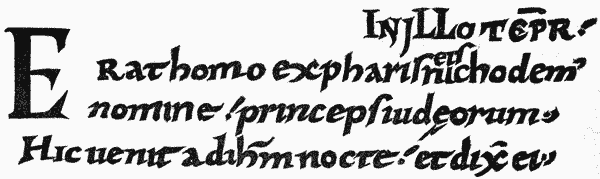 IN JLLO TEP̄R·/
ERat homo expharıſeıſ nichodem’
nomıne·/ prıncepſıudeorum·
Hıc uenıt adıhm̄ nocte·/ et dıx̄ eı·